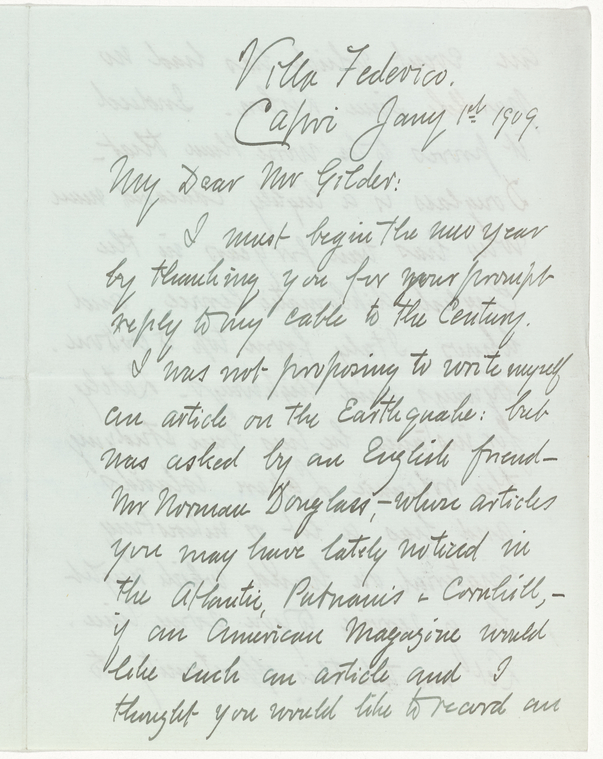 Villa Federico.
Capri Jany 1st 1909.
My Dear Mr Gilder:
I must begin the new year
by thanking you for your prompt
reply to my cable to the Century.
I was not proposing to write myself
an article on the Earthquake: but
was asked by an English friend–
Mr Norman Douglass,–whose articles
you may have lately noticed in
the Atlantic, Putnam's & Cornhill,–
if an American Magazine would
like such an article and I
thought you would like to record an